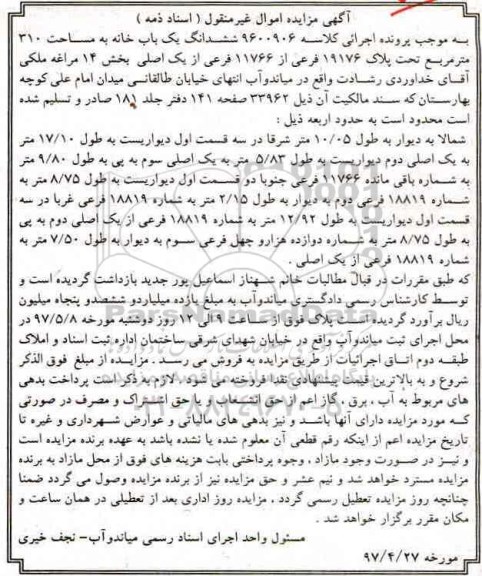 آگهی مزایده اموال غیرمنقول ( اسناد ذمه )
به موجب پرونده اجرائی کلاسه ۹۶۰۰۹۰۶ ششدانگ یک باب خانه به مساحت ۳۱۰
مترمربع تحت پلاک ۱۹۱۷۶ فرعی از ۱۱۷۶۶ فرعی از یک اصلی بخش ۱۴ مراغه ملکی
آقای خداوردی رشادت واقع در میاندوآب انتهای خیابان طالقانی میدان امام علی کوچه
بهارستان که سند مالکیت آن ذیل ۳۳۹۶۲ صفحه ۱۴۱ دفتر جلد ۱۸۱ صادر و تسلیم شده
است محدود است به حدود اربعه ذیل :
شمالا به دیوار به طول ۱۰/۰۵ متر شرقا در سه قسمت اول دیواریست به طول ۱۷/۱۰ متر
به یک اصلی دوم دیواریست به طول ۵/۸۳ متر به یک اصلی سوم به پی به طول ۹/۸۰ متر
به شماره باقی مانده ۱۱۷۶۶ فرعی جنوبا دو قسمت اول دیواریست به طول ۸/۷۵ متر به
شماره ۱۸۸۱۹ فرعی دوم به دیوار به طول ۲/۱۵ متر به شماره ۱۸۸۱۹ فرعی غربا در سه
قسمت اول دیواریست به طول ۱۲/۹۲ متر به شماره ۱۸۸۱۹ فرعی از یک اصلی دوم به پی
به طول ۸/۷۵ متر به شماره دوازده هزارو چهل فرعی سوم به دیوار به طول ۷/۵۰ متر به
شماره ۱۸۸۱۹ فرعی از یک اصلی .
که طبق مقررات در قبال مطالبات خانم شهناز اسماعیل پور جدید بازداشت گردیده است و
توسط کارشناس رسمی دادگستری میاندوآب به مبلغ یازده میلیاردو ششصدو پنجاه میلیون
ریال برآورد گردیده است پلاک فوق از ساعت ۹ الی ۱۲ روز دوشنبه مورخه ۹۷/۵/۸ در
محل اجرای ثبت میاندوآب واقع در خیابان شهدای شرقی ساختمان اداره ثبت اسناد و املاک
طبقه دوم اتاق اجرائیات از طریق مزایده به فروش می رسد . مزایده از مبلغ فوق الذکر
شروع و به بالاترین قیمت پیشنهادی نقدا فروخته می شود . لازم به ذکر است پرداخت بدهی
های مربوط به آب ، برق ، گاز اعم از حق انشعاب و یا حق اشتراک و مصرف در صورتی
که مورد مزایده دارای آنها باشد و نیز بدهی های مالیاتی و عوارض شهرداری و غیره تا
تاریخ مزایده اعم از اینکه رقم قطعی آن معلوم شده یا نشده باشد به عهده برنده مزایده است
و نیز در صورت وجود مازاد ، وجوه پرداختی بابت هزینه های فوق از محل مازاد به برنده
مزایده مسترد خواهد شد و نیم عشر و حق مزایده نیز از برنده مزایده وصول می گردد ضمنا
چنانچه روز مزایده تعطیل رسمی گردد ، مزایده روز اداری بعد از تعطیلی در همان ساعت و
مکان مقرر برگزار خواهد شد .
مسئول واحد اجرای اسناد رسمی میاندوآب– نجف خیری
مورخه ۹۷/۴/۲۷